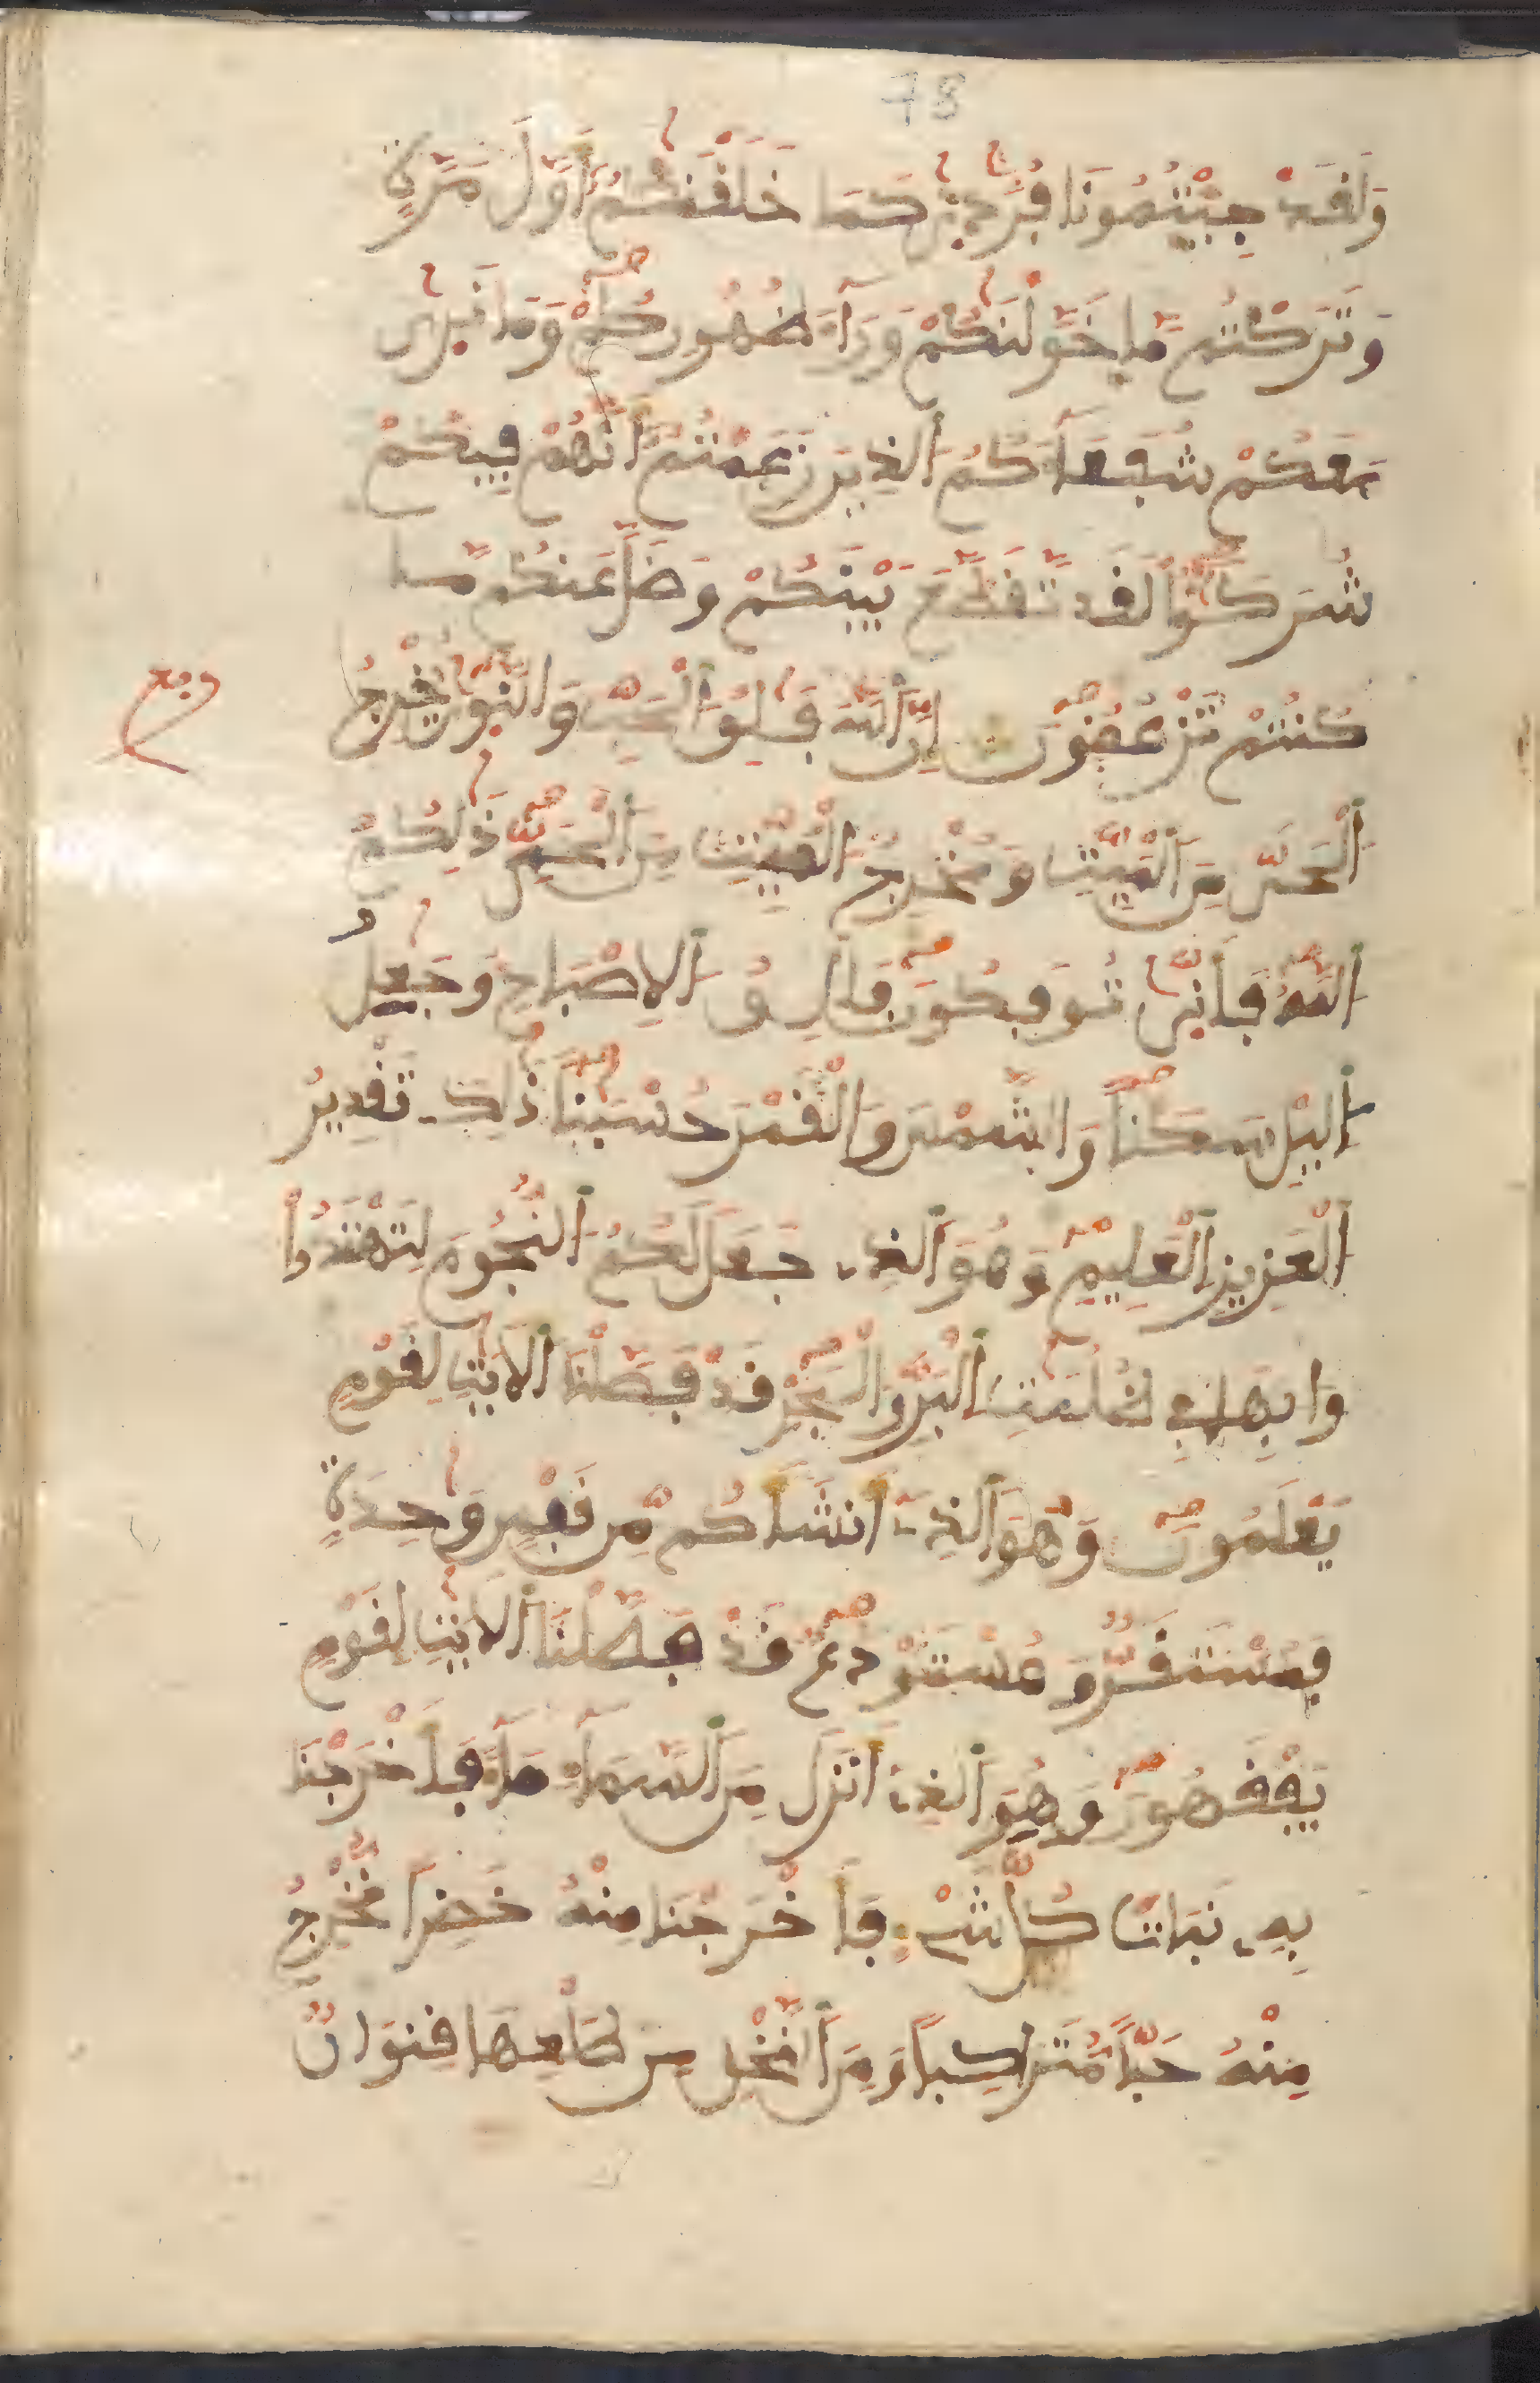 78
وَلَقَدْ جِئْتُمُونَا فُرَٰدِىٰ كَمَا خَلَقْنَٰكُمُ أَوَّلَ مَرَّةٍ
وَتَرَكْتُم مَّا خَوَّلْنَٰكُمْ وَرَآءَ ظُهُورِكُمْ وَمَا نَرِىٰ
مَعَكُمْ شُفَعَآءَكُمُ الذِينَ زَعَمْتُمُ أَنَّهُمْ فِيكُمْ
شُرَكَٰٓؤُا لَقَد تَّقَطَّعَ بَيْنَكُمْ وَضَلَّ عَنكُم مَّا
كُنتُمْ تَزْعُمُونَ إِنَّ اَللَّهَ فَٰلِقُ اُلْحَبِّ وَالنَّوِىٰ يُخْرِجُ
اَلْحَىَّ مِنَ اَلْمَيِّتِ وَمُخْرِجُ اُلْمَيِّتِ مِنَ اَلْحَىِّ ذَٰلِكُمُ
اُللَّهُ فَأَنِّىٰ تُوفَكُونَ فَالِقُ اُلِاصْبَاحِ وَجَٰعِلُ
اُليْلِ سَكَناً وَالشَّمْسَ وَالْقَمَرَ حُسْبَٰناً ذَٰلِكَ تَقْدِيرُ
اُلْعَزِيزِ اِلْعَلِيمِ وَهُوَ اَلذِى جَعَلَ لَكُمُ اُلنُّجُومَ لِتَهْتَدُوا
وا بِهَا فِى ظُلُمَٰتِ اِلْبَرِّ وَالْبَحْرِ قَدْ فَصَّلْنَا اَلَايَٰتِ لِقَوْمٍ
يَعْلَمُونَ وَهُوَ اَلذِى أَنشَأَكُم مِّن نَّفْسٍ وَٰحِدَةٍ
فَمُسْتَقَرٌّ وَمُسْتَوْدَعٌ قَدْ فَصَّلْنَا اَلَايَٰتِ لِقَوْمٍ
يَفْقَهُونَ وَهُوَ اَلذِى أَنزَلَ مِنَ اَلسَّمَآءِ مَآءً فَأَخْرَجْنَا
بِهِ نَبَاتَ كُلِّ شَىْءٍ فَأَخْرَجْنَا مِنْهُ خَضِراً نُّخْرِجُ
مِنْهُ حَبّاً مُّتَرَاكِباً وَمِنَ اَلنَّخْلِ مِن طَلْعِهَا قِنْوَانٌ